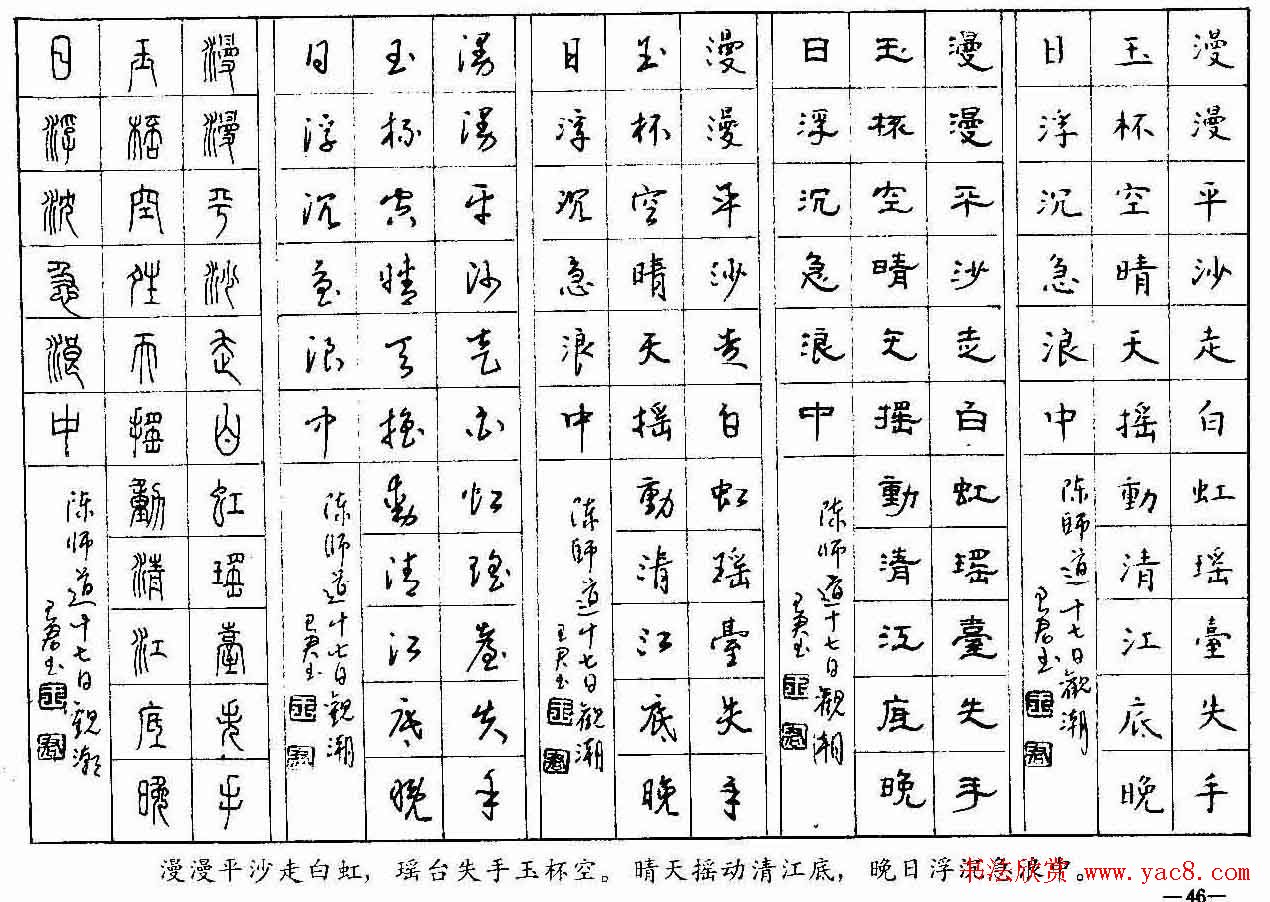 漫漫平沙走白虹瑶臺失手
玉杯空晴天摇動清江底晚
日浮沉急浪中
陈師道十七日觀潮
漫漫平沙走白虹瑶臺失手
玉杯空晴天摇動清江底晚
日浮沉急浪中
陈师道十七日觀潮
漫漫平沙走白虹瑶臺失手
玉杯空晴天摇動清江底晚
日浮沉急浪中
陈師道十七日觀潮
漫漫平沙走白虹瑶臺失手
玉杯空晴天摇動清江底晚
日浮沉急浪中
陈师道十七日觀潮
漫漫平沙走白虹瑶臺失手
玉杯空晴天摇動清江底晚
日浮沈急浪中
陈师道十七日觀潮
漫漫平沙走白虹，瑶台失手玉杯空。晴天摇动清江底，晚日浮沉急浪中。
书法欣赏 www.yac8.com
—46—